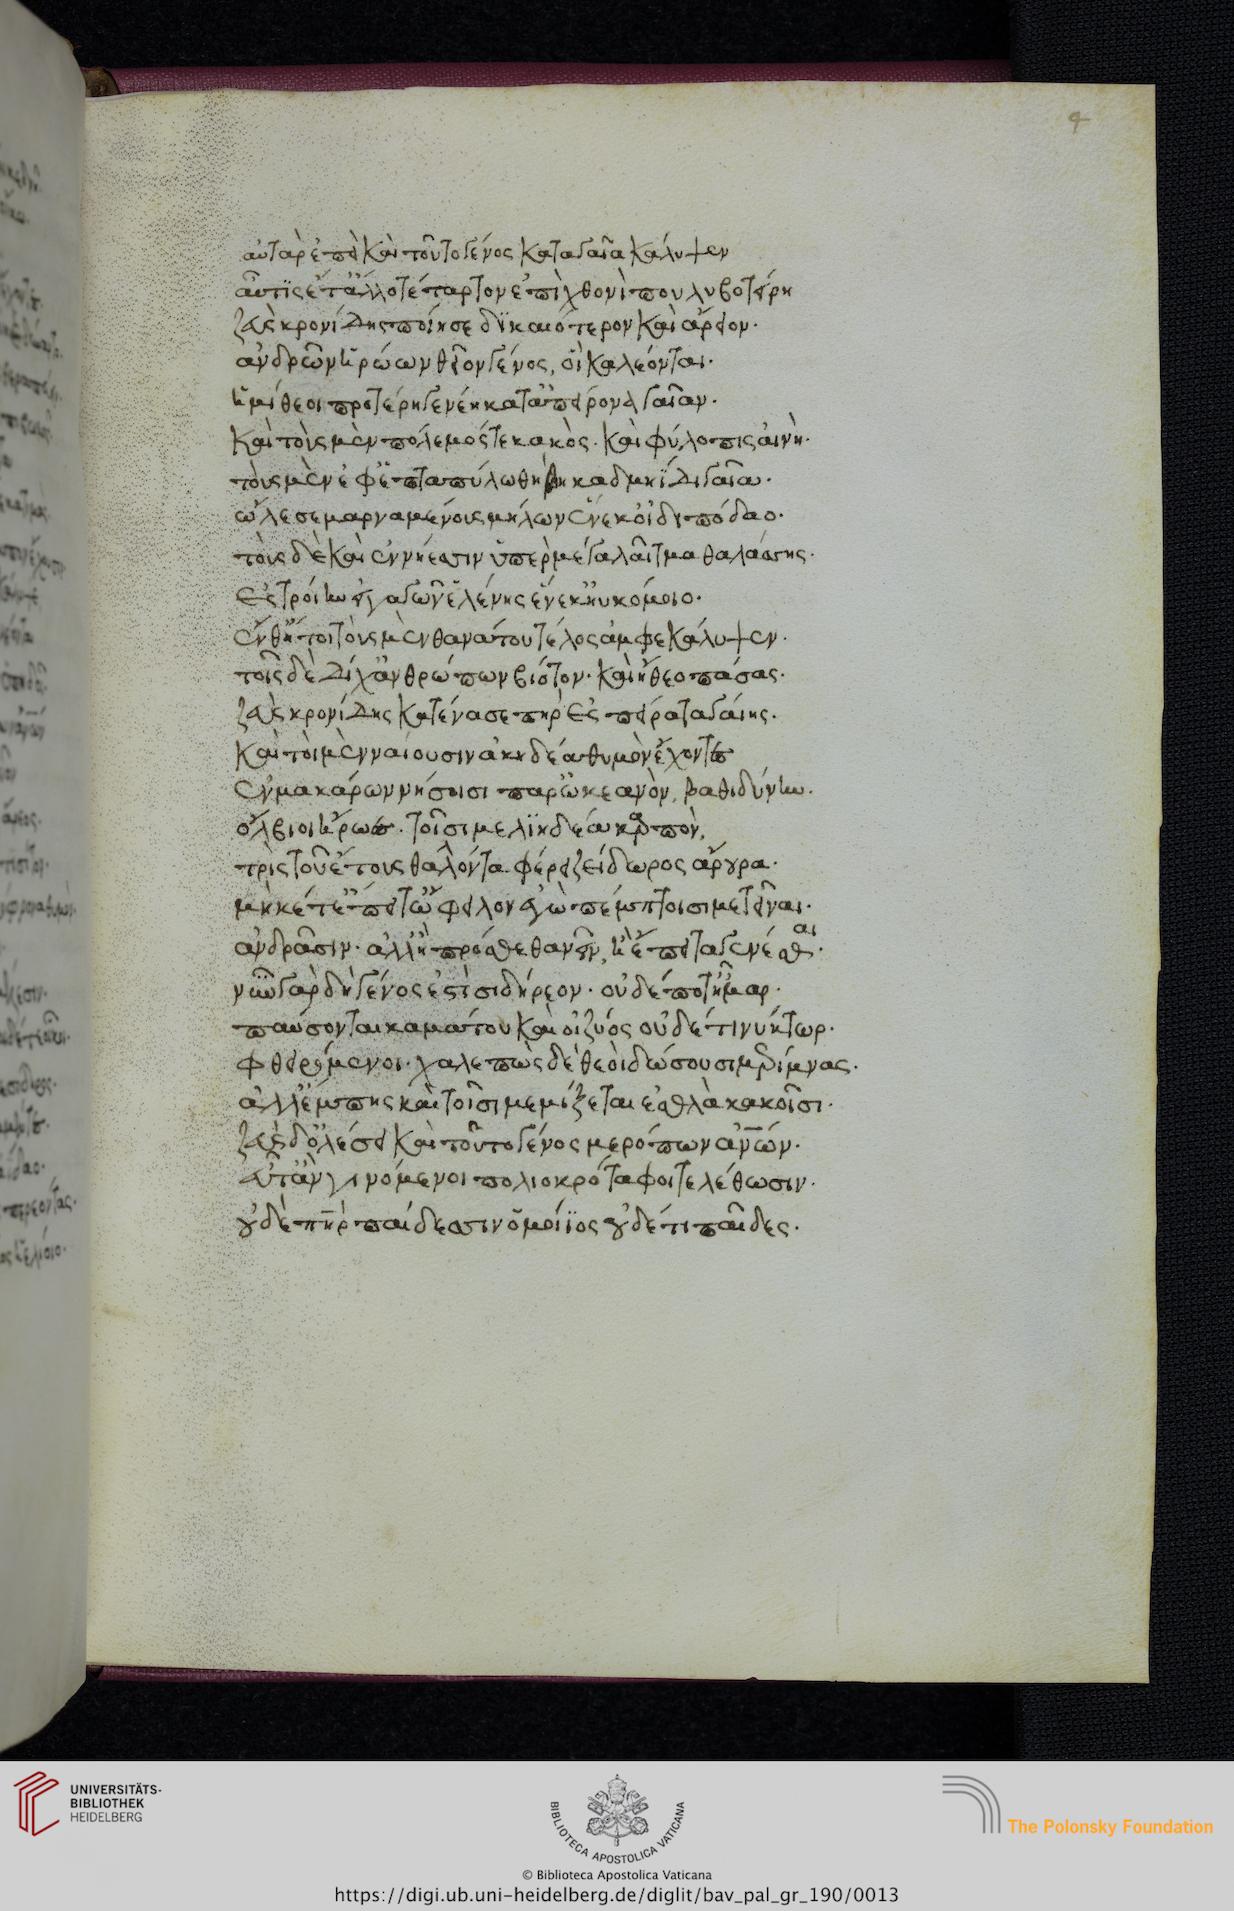 4
αὐτὰρ ἐπεὶ καὶ τοῦτο γένος κατὰ γαῖα κάλυψεν
αὖτις ἔτ' ἄλλο τέταρτον ἐπὶ χθονὶ πουλυβοτείρη
ζεὺς κρονίδης ποίησε δικαιότερον καὶ ἄρειον·
ἀνδρῶν ἡρώων θεῖον γένος, οἳ καλέονται·
ἡμίθεοι προτέρη γενέη κατ' ἀπείρονα γαῖαν·
καὶ τοὺς μὲν πόλεμός τε κακὸς· καὶ φύλοπις αἰνὴ·
τοὺς μὲν ἐφ' ἑπταπύλω θήβη καδμηΐδι γαίη·
ὤλεσε μαρναμένους μήλων ἕνεκ' οἰδιπόδαο·
τοὺς δὲ καὶ ἐν νήεσσιν ὑπὲρ μέγα λαῖτμα θαλάσσης·
ἐς τροίην ἀγαγὼν ἑλένης ἕνεκ' ἠυκόμοιο·
ἔνθ' ἤτοι τοὺς μὲν θανάτου τέλος ἀμφεκάλυψεν·
τοῖς δὲ δίχ' ἀνθρώπων βίοτον· καὶ ἤθε' ὀπάσας·
ζεὺς κρονίδης κατένασε πατὴρ ἐς πείρατα γαίης·
καὶ τοὶ μὲν ναίουσιν ἀκηδέα θυμὸν ἔχοντες
ἐν μακάρων νήσοισι παρ' ὠκεανὸν, βαθιδύνην·
ὄλβιοι ἥρωες· τοῖσι μελιηδέα καρπὸν,
τρὶς τοῦ ἔτους θάλλοντα φέρει ζείδωρος ἄρουρα·
μηκέτ' ἔπειτ' ὤφειλον ἐγὼ πέμπτοισι μετεῖναι·
ἀνδράσιν· ἀλλ' ἢ πρόσθε θανεῖν, ἢ ἔπειτα γενέσθαι·
νῦν γὰρ δὴ γένος ἐστὶ σιδήρεον· οὐδέ ποτ' ἦμαρ·
παύσονται καμάτου καὶ οἰζύος οὐδέ τι νύκτωρ·
φθειρόμενοι· χαλεπὼς δὲ θεοὶ δώσουσι μερίμνας·
ἀλλ' ἔμπης καὶ τοῖσι μεμίξεται ἐσθλὰ κακοῖσι·
ζεὺς δ' ὀλέσει καὶ τοῦτο γένος μερόπων ἀνων·
εὖτ' ἂν γινόμενοι πολιοκρόταφοι τελέθωσιν·
οὐδὲ πὴρ παίδεσσιν ὁμοίϊος οὐδέ τι παῖδες·
UNIVERSITÄTS-
BIBLIOTHEK
HEIDELBERG
BIBLIOTECA APOSTOLICA VATICANA
The Polonsky Foundation
© Biblioteca Apostolica Vaticana
https://digi.ub.uni-heidelberg.de/diglit/bav_pal_gr_190/0013